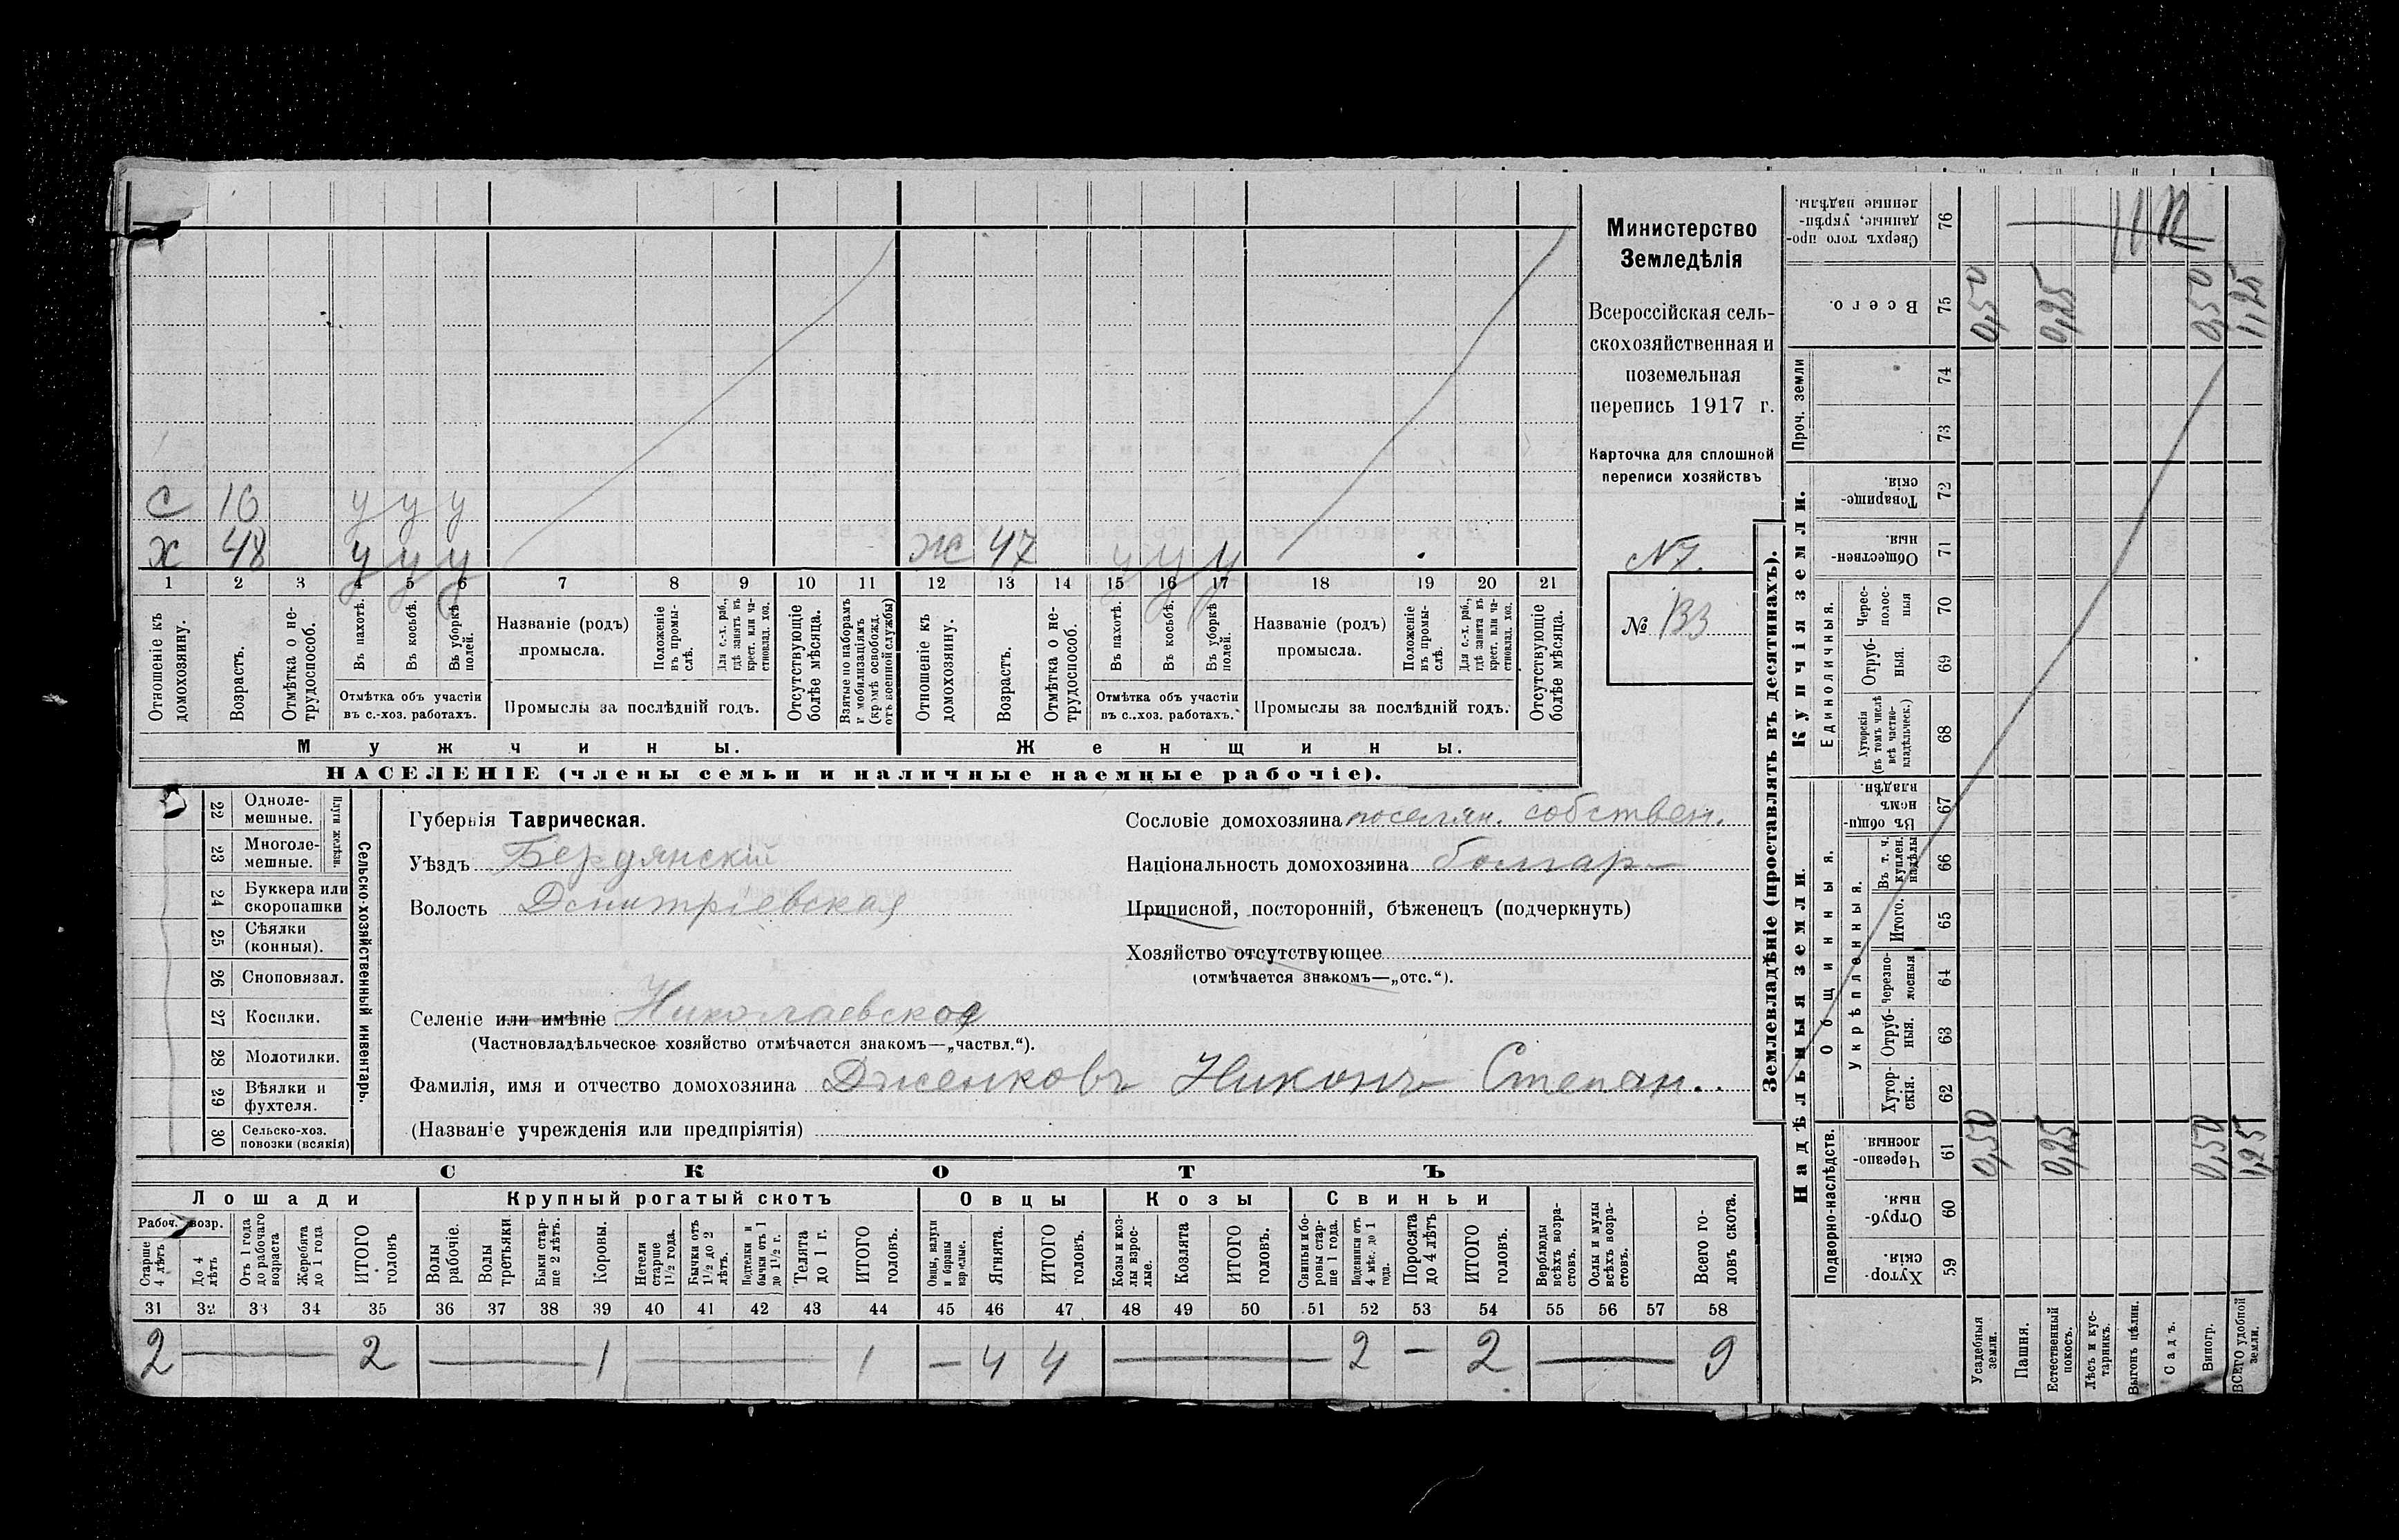 С 16 у у у
Х 48 у у у Ж 47 у у у
1 2 3 4 5 6 7 8 9 10 11 12 13 14 15 16 17 18 19 20 21
Отношеніе къ домохозяину.
Возрастъ.
Отмѣтка о не-
трудоспособ.
Въ пахотѣ.
Въ косьбѣ.
Въ уборкѣ полей.
Отмѣтка объ участіи
въ с.-хоз. работахъ.
Названіе (родъ)
промысла.
Положеніе въ промы-
слѣ.
Для с.-х. раб., гдѣ занятъ въ крест. или ча-
стновлад. хоз.
Промыслы за послѣдній годъ.
Отсутствующіе болѣе мѣсяца.
Взятые по наборамъ и мобилизаціямъ (кромѣ освобожд. отъ военной службы)
Отношеніе къ домохозяину.
Возрастъ.
Отмѣтка о не-
трудоспособ.
Въ пахотѣ.
Въ косьбѣ.
Въ уборкѣ полей.
Отмѣтка объ участіи
въ с.-хоз. работахъ.
Названіе (родъ)
промысла.
Положеніе въ промы-
слѣ.
Для с.-х. раб., гдѣ занята въ крест. или ча-
стновлад. хоз.
Промыслы за послѣдній годъ.
Отсутствующіе болѣе мѣсяца.
Мужчины. Женщины.
НАСЕЛЕНІЕ (члены семьи и наличные наемные рабочіе).
Министерство
Земледѣлія
Всероссійская сель-
скохозяйственная и
поземельная
перепись 1917 г.
Карточка для сплошной
переписи хозяйствъ
№ 133
22 Одноле-
мешные.
23 Многоле-
мешные.
Плуги желѣзн.
24 Буккера или
скоропашки
25 Сѣялки
(конныя).
26 Сноповязал.
27 Косилки.
28 Молотилки.
29 Вѣялки и
фухтеля.
30 Сельско-хоз.
повозки (всякія)
Сельско-хозяйственный инвентарь.
Губернія Таврическая.
Уѣздъ Бердянскій
Волость Дмитріевская
Селеніе или имѣніе Николаевское
(Частновладѣльческое хозяйство отмѣчается знакомъ—„частвл.“).
Фамилія, имя и отчество домохозяина Дженковъ Никонъ Степан.
(Названіе учрежденія или предпріятія)
Сословіе домохозяина поселян. собствен.
Національность домохозяина болгар
Приписной, посторонній, бѣженецъ (подчеркнуть)
Хозяйство отсутствующее
(отмѣчается знакомъ—„отс.“).
СКОТЪ
Лошади Крупный рогатый скотъ Овцы Козы Свиньи
Рабоч. возр.
Старше 4 лѣтъ
До 4 лѣтъ
Отъ 1 года до рабочаго возраста
Жеребята до 1 года
ИТОГО головъ
Волы рабочіе.
Волы третьяки
Быки стар-
ше 2 лѣтъ.
Коровы.
Нетели старше 1½ года.
Бычки отъ 1½ до 2 лѣтъ.
Подтелки и бычки отъ 1 до 1½ г.
Телята до 1 г.
ИТОГО головъ.
Овцы, валухи и бараны взрослые.
Ягнята.
ИТОГО головъ.
Козы и коз-
лы взрос-
лые.
Козлята
ИТОГО головъ.
Свиньи и бо-
ровы стар-
ше 1 года.
Подсвинки отъ 4 мѣс. до 1 года.
Поросята до 4 лѣтъ
ИТОГО головъ.
Верблюды всѣхъ возра-
стовъ.
Ослы и мулы всѣхъ возра-
стовъ.
Всего го-
ловъ скота.
31 32 33 34 35 36 37 38 39 40 41 42 43 44 45 46 47 48 49 50 51 52 53 54 55 56 57 58
2 — 2 — 1 — 1 — 4 4 — 2 — 2 — 9
Землевладѣніе (проставлять въ десятинахъ).
Надѣльныя земли.
Купчія земли.
Проч. земли
Подворно-наслѣдств.
Общинныя.
Укрѣпленныя.
Единоличныя.
Сверхъ того про-
данные, укрѣп-
ленные надѣлы. 76
Всего. 75 0,50 0,25 0,50 1,25
74
73
Товарище-
скія. 72
Обществен-
ныя. 71
Черес-
полос-
ныя 70
Отруб-
ныя. 69
Хуторскія (въ томъ числѣ всѣ частно-
владѣльческ.) 68
Въ общи-
номъ владѣн. 67
Въ т. ч. куплен. надѣлы 66
Итого. 65
Черезпо-
лосныя 64
Отруб-
ныя. 63
Хутор-
скія. 62
Черезпо-
лосныя. 61 0,50 0,25 0,50 1,25
Отруб-
ныя. 60
Хутор-
скія. 59
Усадебныя земли.
Пашня.
Естественный покосъ.
Лѣсъ и кус-
тарникъ.
Выгонъ цѣлин.
Садъ.
Виногр.
ВСЕГО удобной земли.